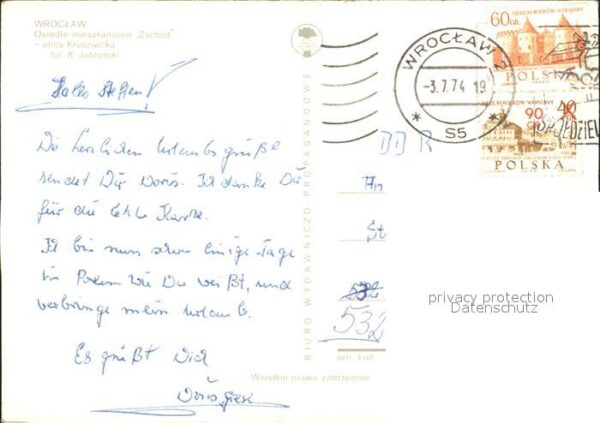 WROCŁAW
Osiedle mieszkaniowe „Zachód"
– ulica Kruszwicka
fot. K. Jabłoński
Hallo Steffen!
Die herzlichen Urlaubsgrüße
sendet Dir Doris. Ich danke Dir
für die letzte Karte.
Ich bin nun schon einige Tage
in Polen wie Du weißt, und
verbringe mein Urlaub.
Es grüßt Dich
Doris
BIURO WYDAWNICZO PROPAGANDOWE
Wszelkie prawa zastrzeżone
WROCŁAW 2
-3.7.74 19
S5
60 GR
700 LAT WARSZAWY
POLSKA
90
40
POLSKA
DDR
An
St
532
532
ozn. kod
privacy protection
Datenschutz